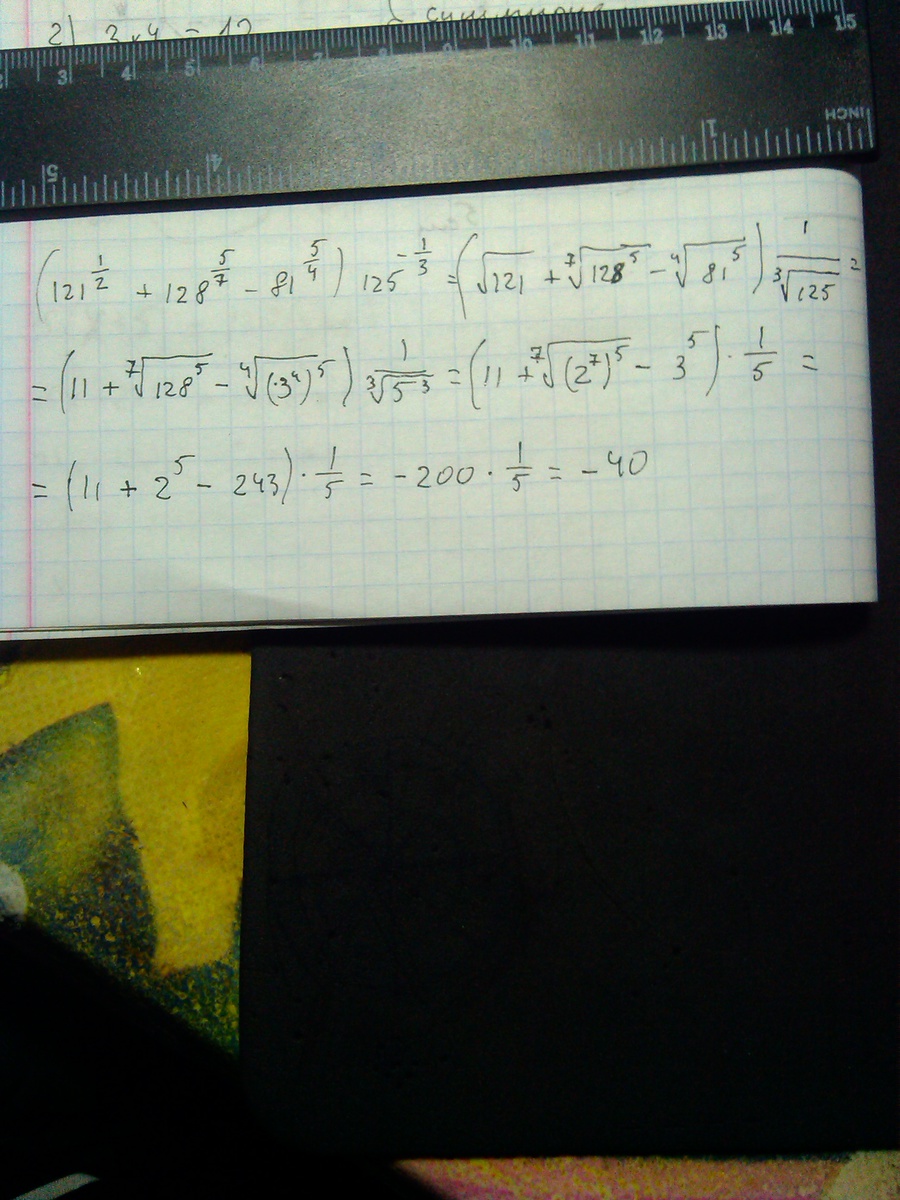 2) 3 × 4 = 12
3 4 5 6 7 8 9 10 11 12 13 14 15
5 4 1 INCH
(121^{1/2} + 128^{5/7} - 81^{5/4}) 125^{-1/3} = (√121 + ⁷√128^5 - ⁴√81^5) 1/³√125 =
= (11 + ⁷√128^5 - ⁴√(3^4)^5) 1/³√5^3 = (11 + ⁷√(2^7)^5 - 3^5) · 1/5 =
= (11 + 2^5 - 243) · 1/5 = -200 · 1/5 = -40